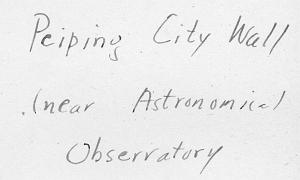 Peiping City Wall
(near Astronomical
Observatory